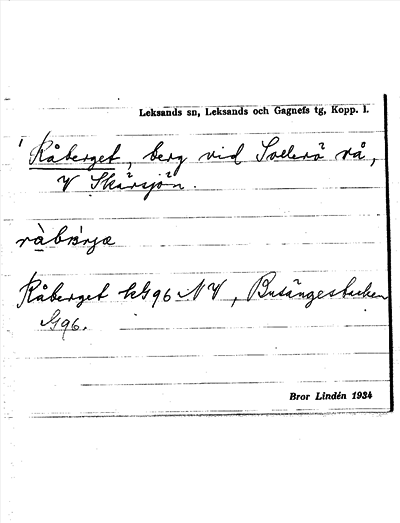 Leksands sn, Leksands och Gagnefs tg, Kopp. l.
Råberget, berg vid Sollerö rå,
V Skärsjön.
Råberget kG96 NV, Busängesbacken
G96.
Bror Lindén 1934